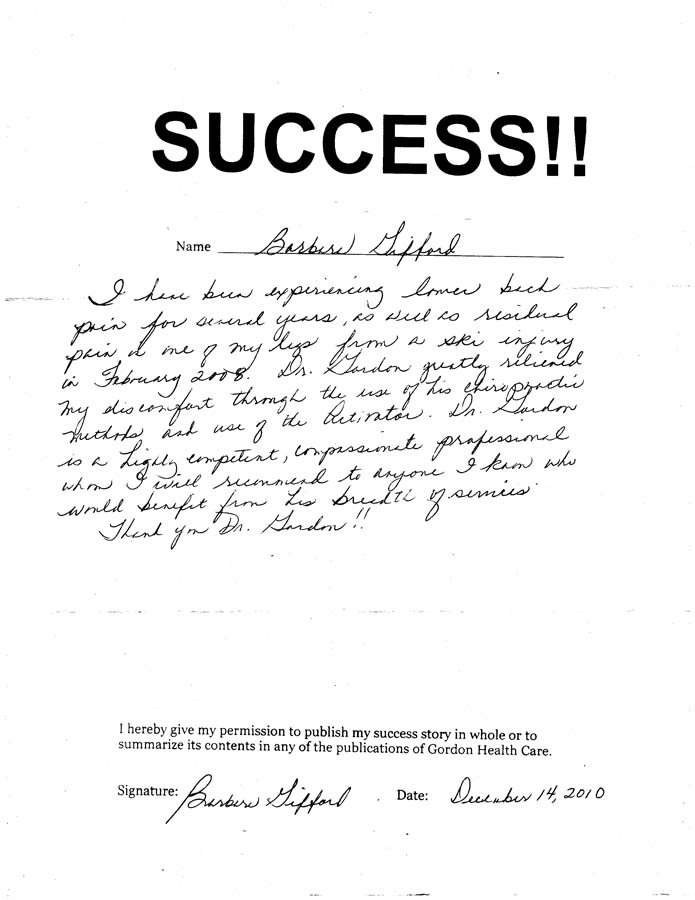 SUCCESS!!
Name Barbara Gifford
I have been experiencing lower back
pain for several years, as well as residual
pain in one of my legs from a ski injury
in February 2008. Dr. Gordon greatly relieved
my discomfort through the use of his chiropractic
methods and use of the Activator. Dr. Gordon
is a highly competent, compassionate professional
whom I will recommend to anyone I know who
would benefit from his breadth of services.
Thank you Dr. Gordon!!
I hereby give my permission to publish my success story in whole or to
summarize its contents in any of the publications of Gordon Health Care.
Signature: Barbara Gifford Date: December 14, 2010